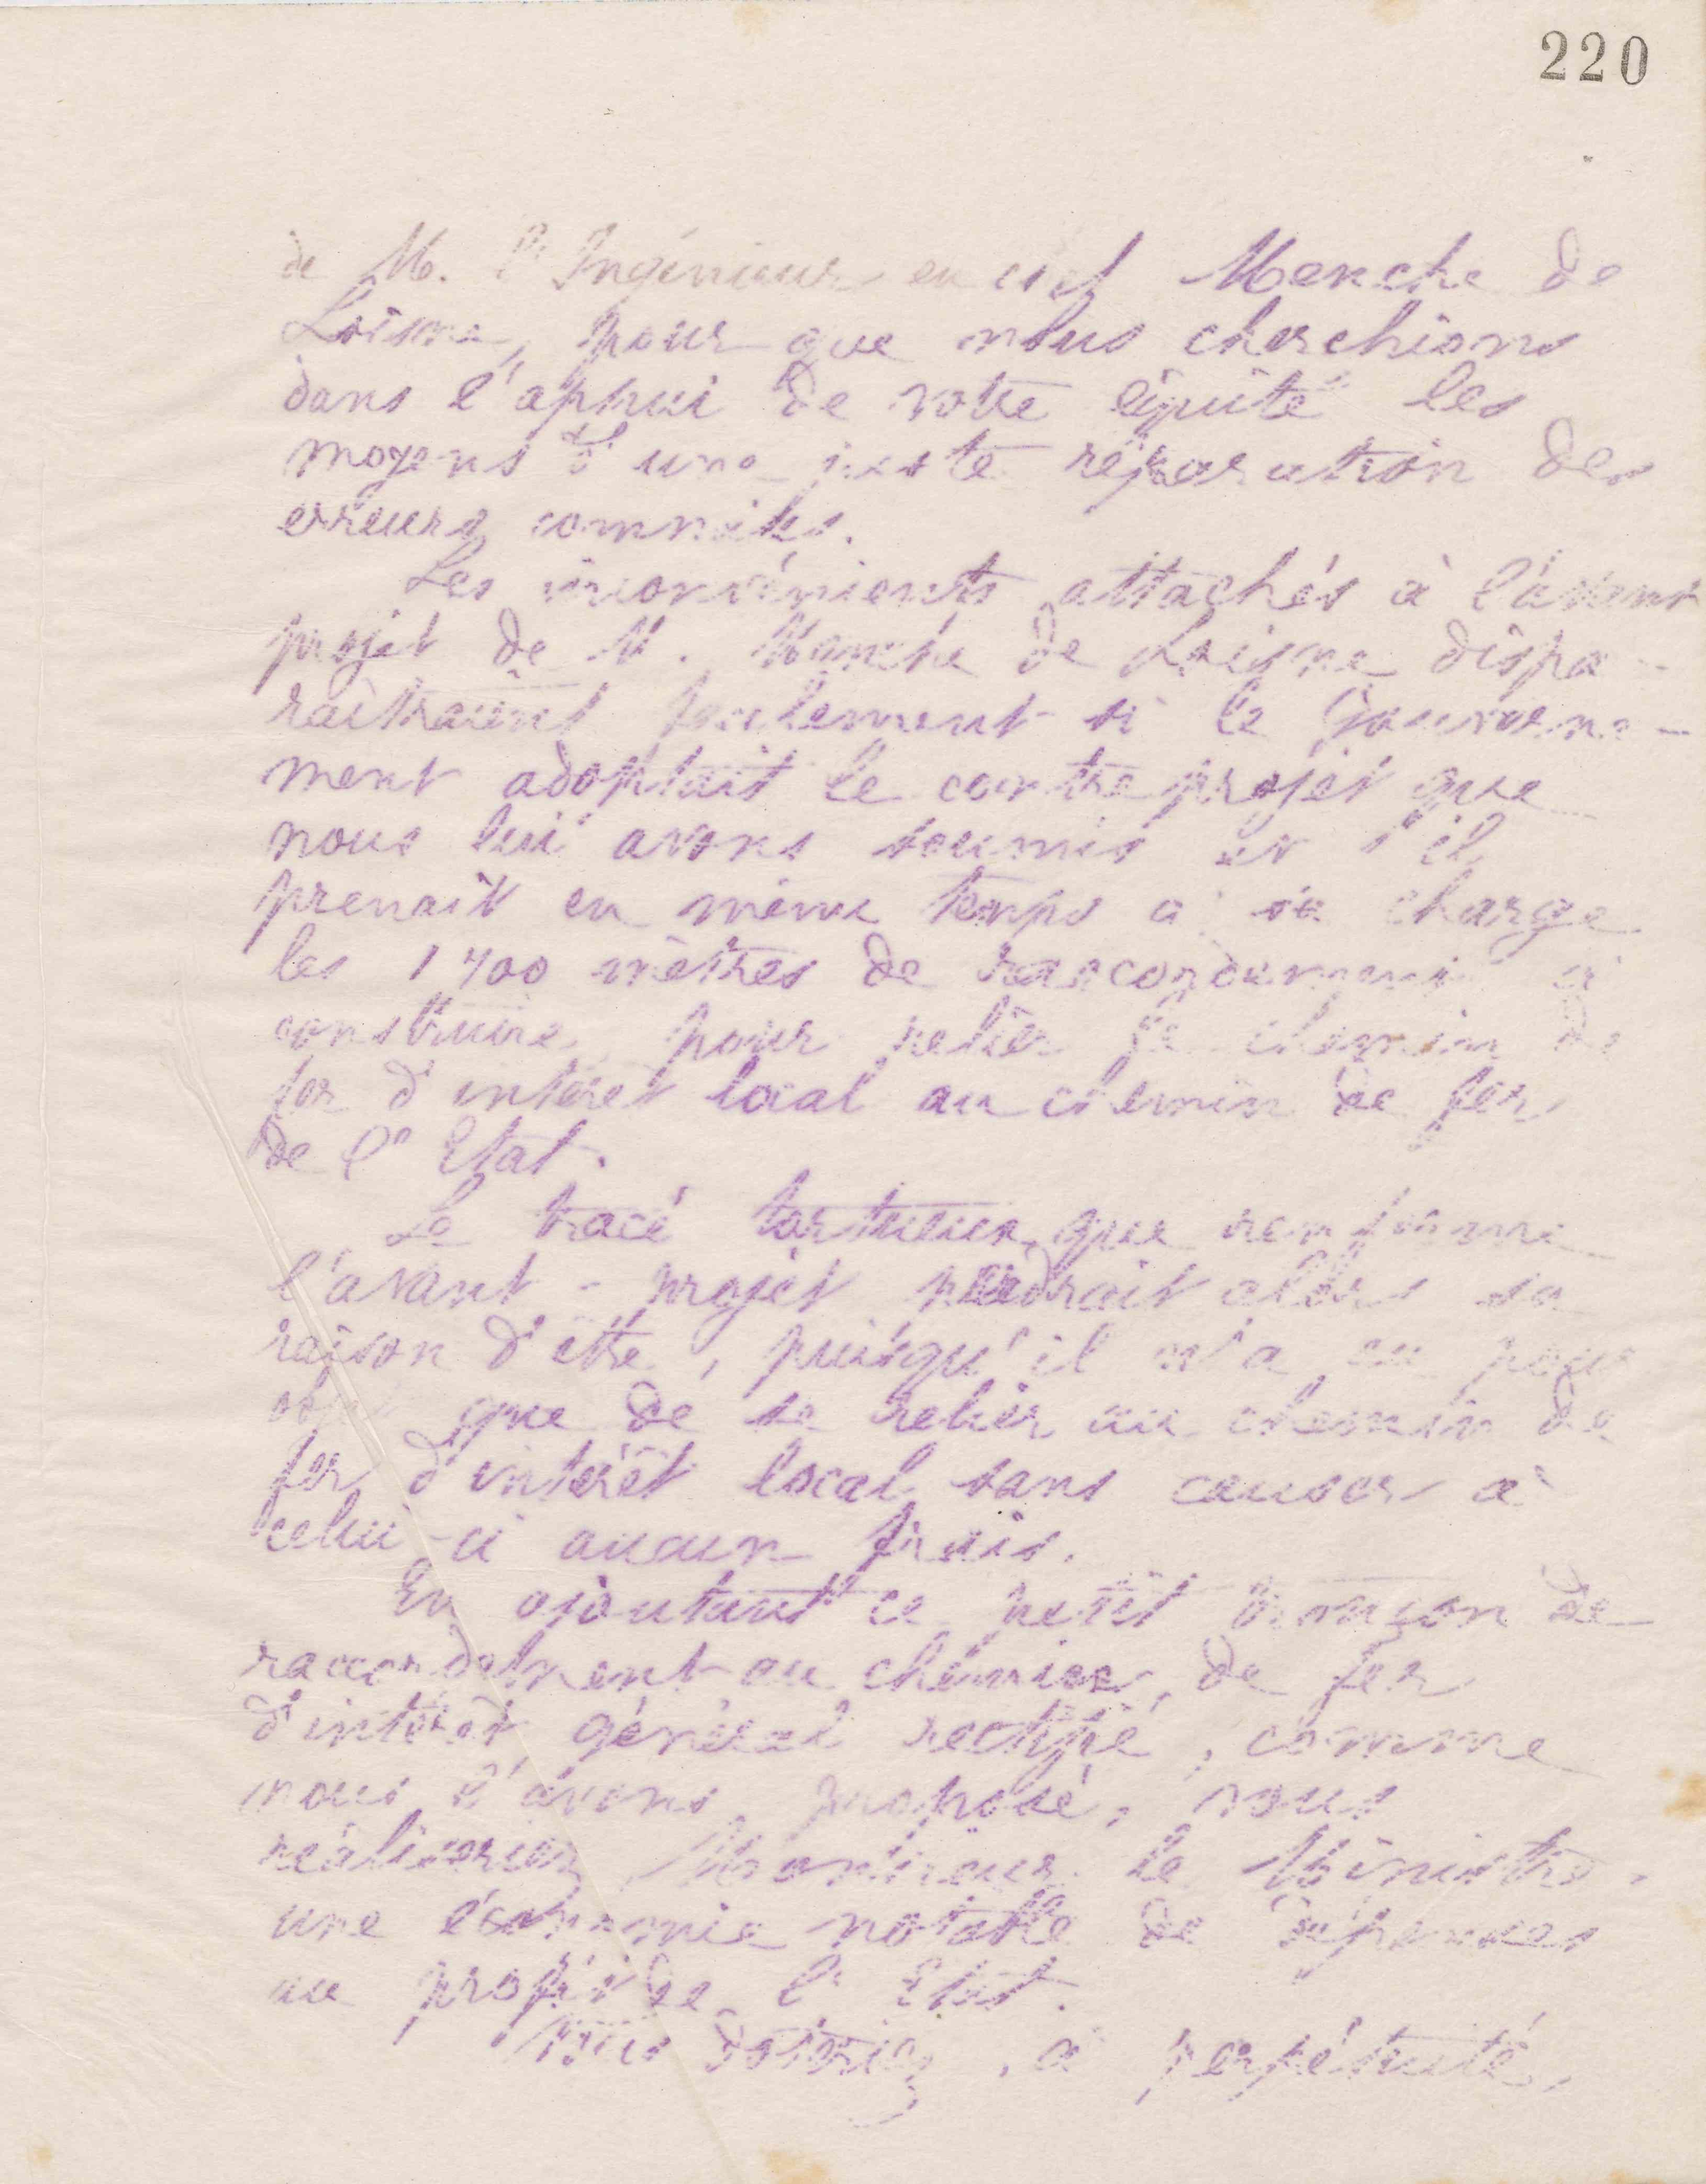 220
de M. l'Ingénieur en chef Menche de
Loisne, pour que nous cherchions
dans l'appui de votre équité les
moyens d'une juste réparation des
erreurs commises.
Les inconvénients attachés à l'avant
projet de M. Menche de Loisne dispa-
raîtraient facilement si le Gouverne-
ment adoptait le contre projet que
nous lui avons soumis et s'il
prenait en même temps à sa charge
les 1700 mètres de raccordement à
construire pour relier le chemin de
fer d'intérêt local au chemin de fer
de l'Etat.
Le tracé tortueux que renferme
l'avant-projet perdrait alors sa
raison d'être, puisqu'il n'a eu pour
objet que de se relier au chemin de
fer d'intérêt local sans causer à
celui-ci aucun frais.
En ajoutant ce petit tronçon de
raccordement au chemin de fer
d'intérêt général rectifié, comme
nous l'avons proposé, vous
réaliseriez Monsieur le Ministre,
une économie notable de dépenses
au profit de l'Etat.
Vous doteriez, à perpétuité,